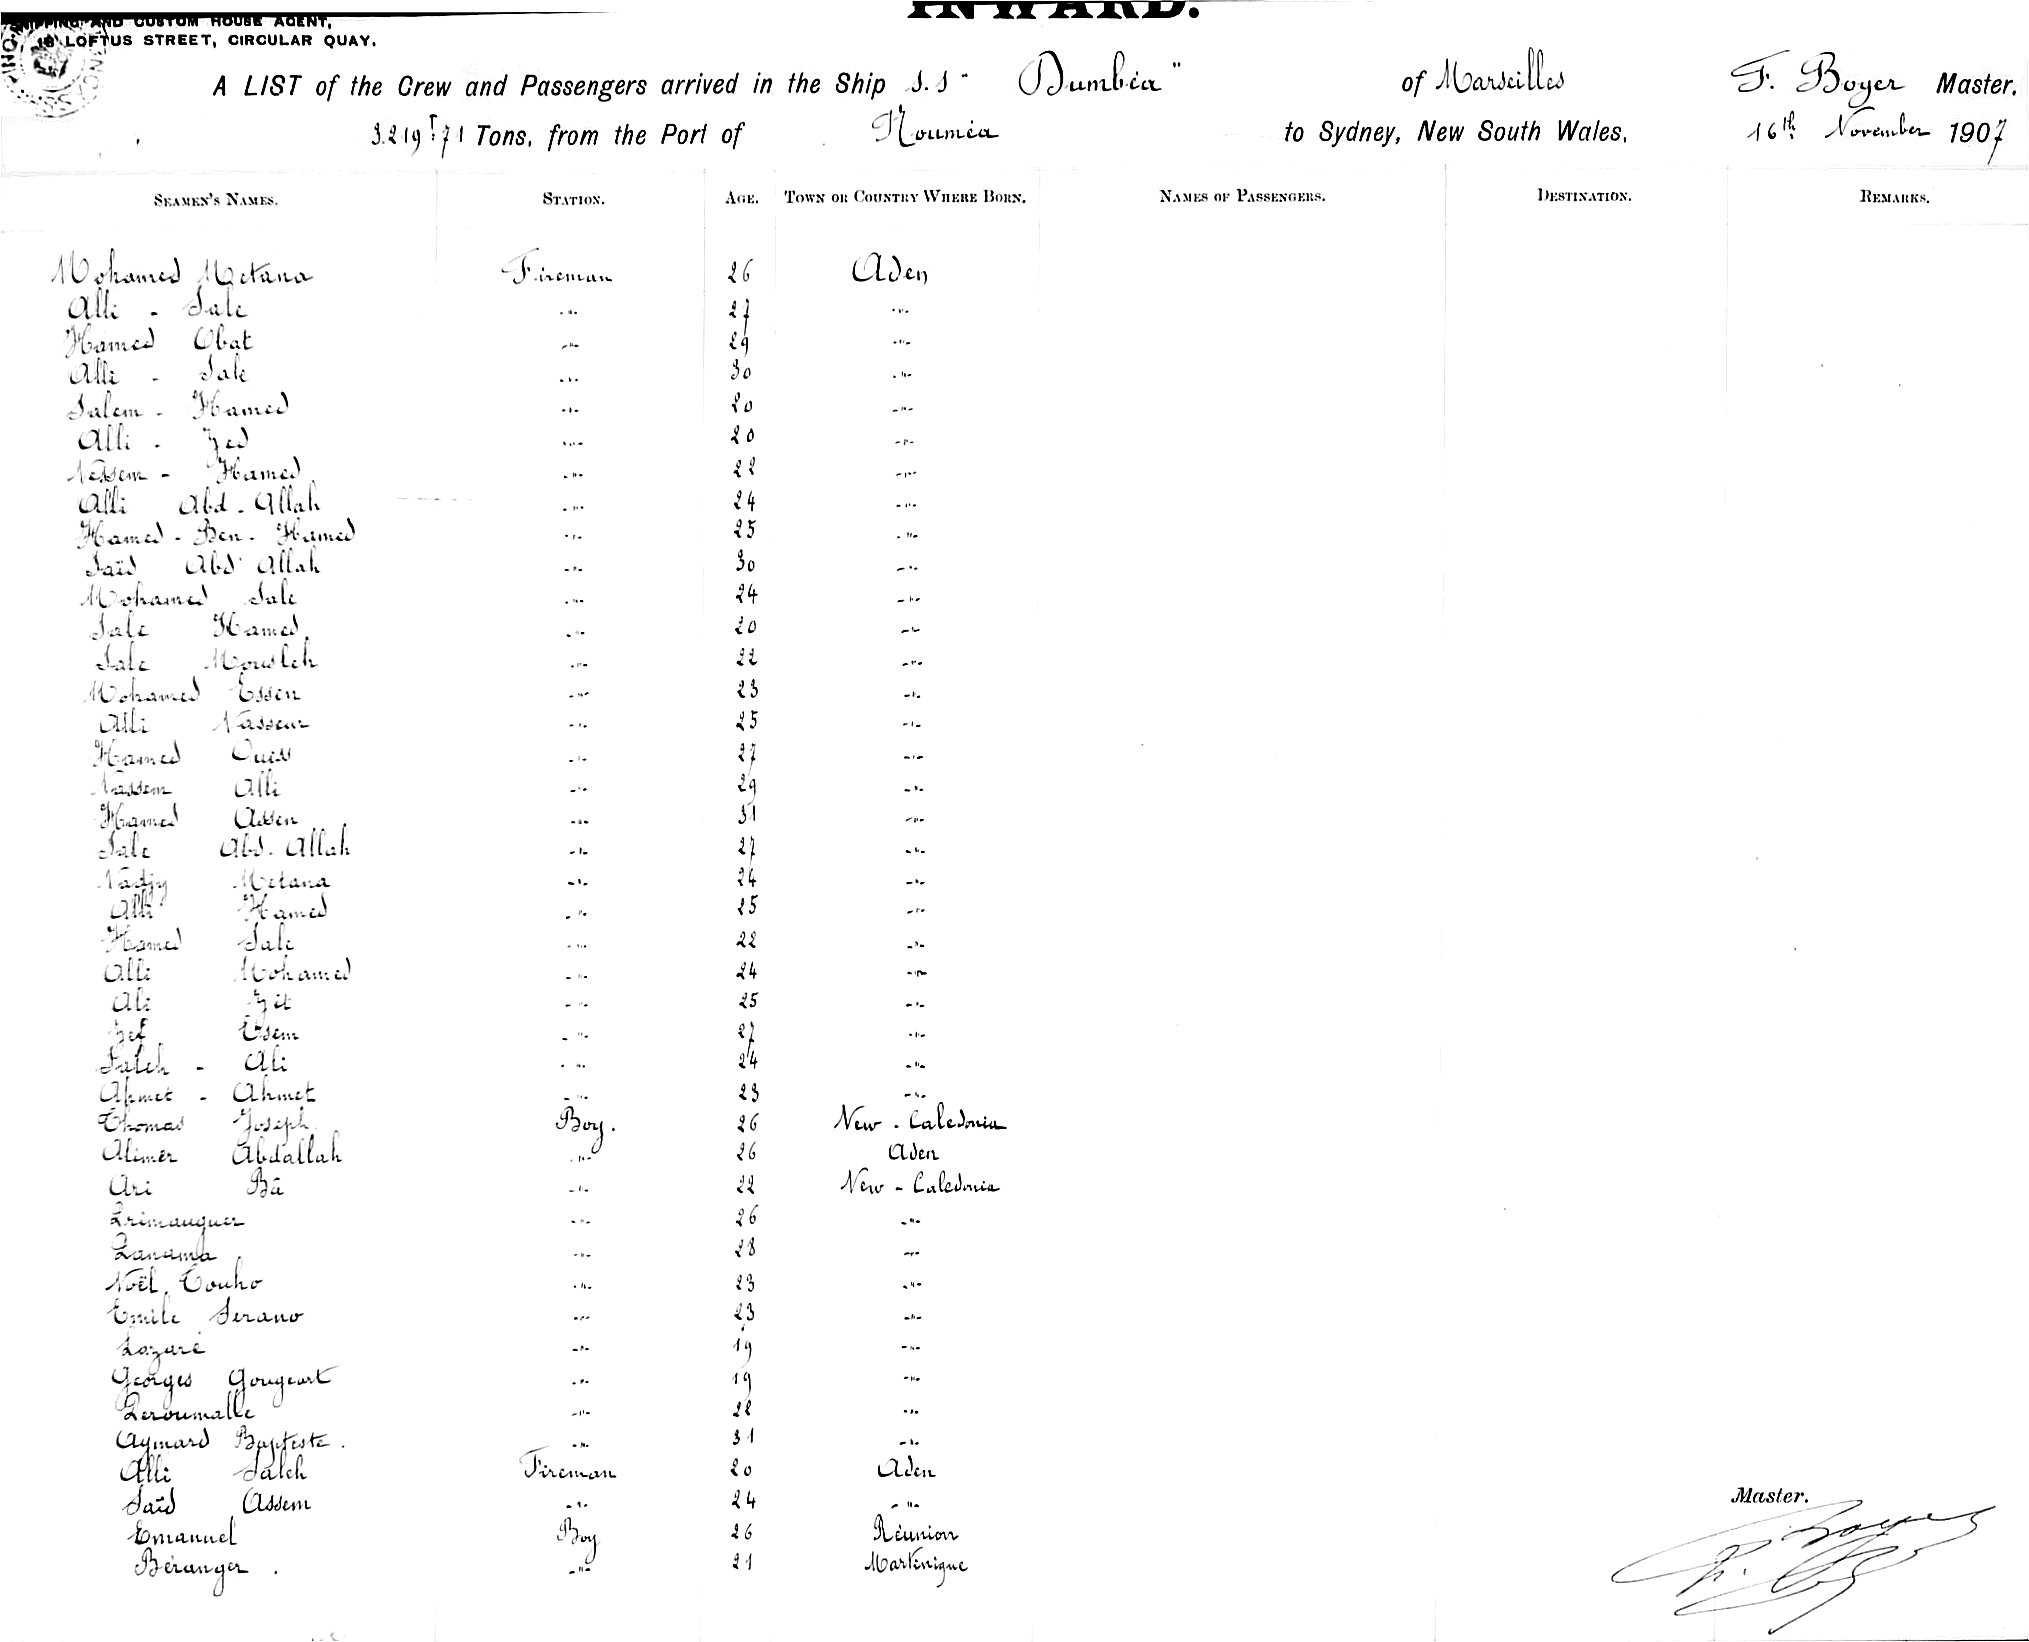 INWARD.
SHIPPING AND CUSTOM HOUSE AGENT,
18 LOFTUS STREET, CIRCULAR QUAY.
A LIST of the Crew and Passengers arrived in the Ship S.S "Dumbéa" of Marseilles F. Boyer Master.
3.219 T 71 Tons, from the Port of Nouméa to Sydney, New South Wales, 16th November 1907
SEAMEN'S NAMES. STATION. AGE. TOWN OR COUNTRY WHERE BORN. NAMES OF PASSENGERS. DESTINATION. REMARKS.
Mohamed Metana Fireman 26 Aden
Alli - Sale -"- 27 -"-
Hamed Obat -"- 29 -"-
Alli - Sale -"- 30 -"-
Salem - Hamed -"- 20 -"-
Alli - Zed -"- 20 -"-
Nessem - Hamed -"- 22 -"-
Alli Abd-Allah -"- 24 -"-
Hamed - Ben - Hamed -"- 25 -"-
Saïd Abd Allah -"- 30 -"-
Mohamed Sale -"- 24 -"-
Sale Hamed -"- 20 -"-
Sale Mousleh -"- 22 -"-
Mohamed Essen -"- 23 -"-
Alli Nasseur -"- 25 -"-
Hamed Ouiss -"- 27 -"-
Nassem Alli -"- 29 -"-
Hamed Assen -"- 31 -"-
Sale Abd-Allah -"- 27 -"-
Nadjy Metana -"- 24 -"-
Alli Hamed -"- 25 -"-
Hamed Sale -"- 22 -"-
Alli Mohamed -"- 24 -"-
Ali Zit -"- 25 -"-
Zef Esem -"- 27 -"-
Saleh - Ali -"- 24 -"-
Ahmet - Ahmet -"- 23 -"-
Thomas Joseph Boy. 26 New-Caledonia
Alimer Abdallah -"- 26 Aden
Ari Bâ -"- 22 New-Caledonia
Primauguer -"- 26 -"-
-"- 28 -"-
Noël Touho -"- 23 -"-
Emile Serano -"- 23 -"-
Lazare -"- 19 -"-
Georges Gougeart -"- 19 -"-
-"- 22 -"-
Aymard Baptiste. -"- 31 -"-
Alli Saleh Fireman 20 Aden
Saïd Assem -"- 24 -"-
Emanuel Boy 26 Réunion
Béranger. -"- 21 Martinique
Master.
F. Boyer